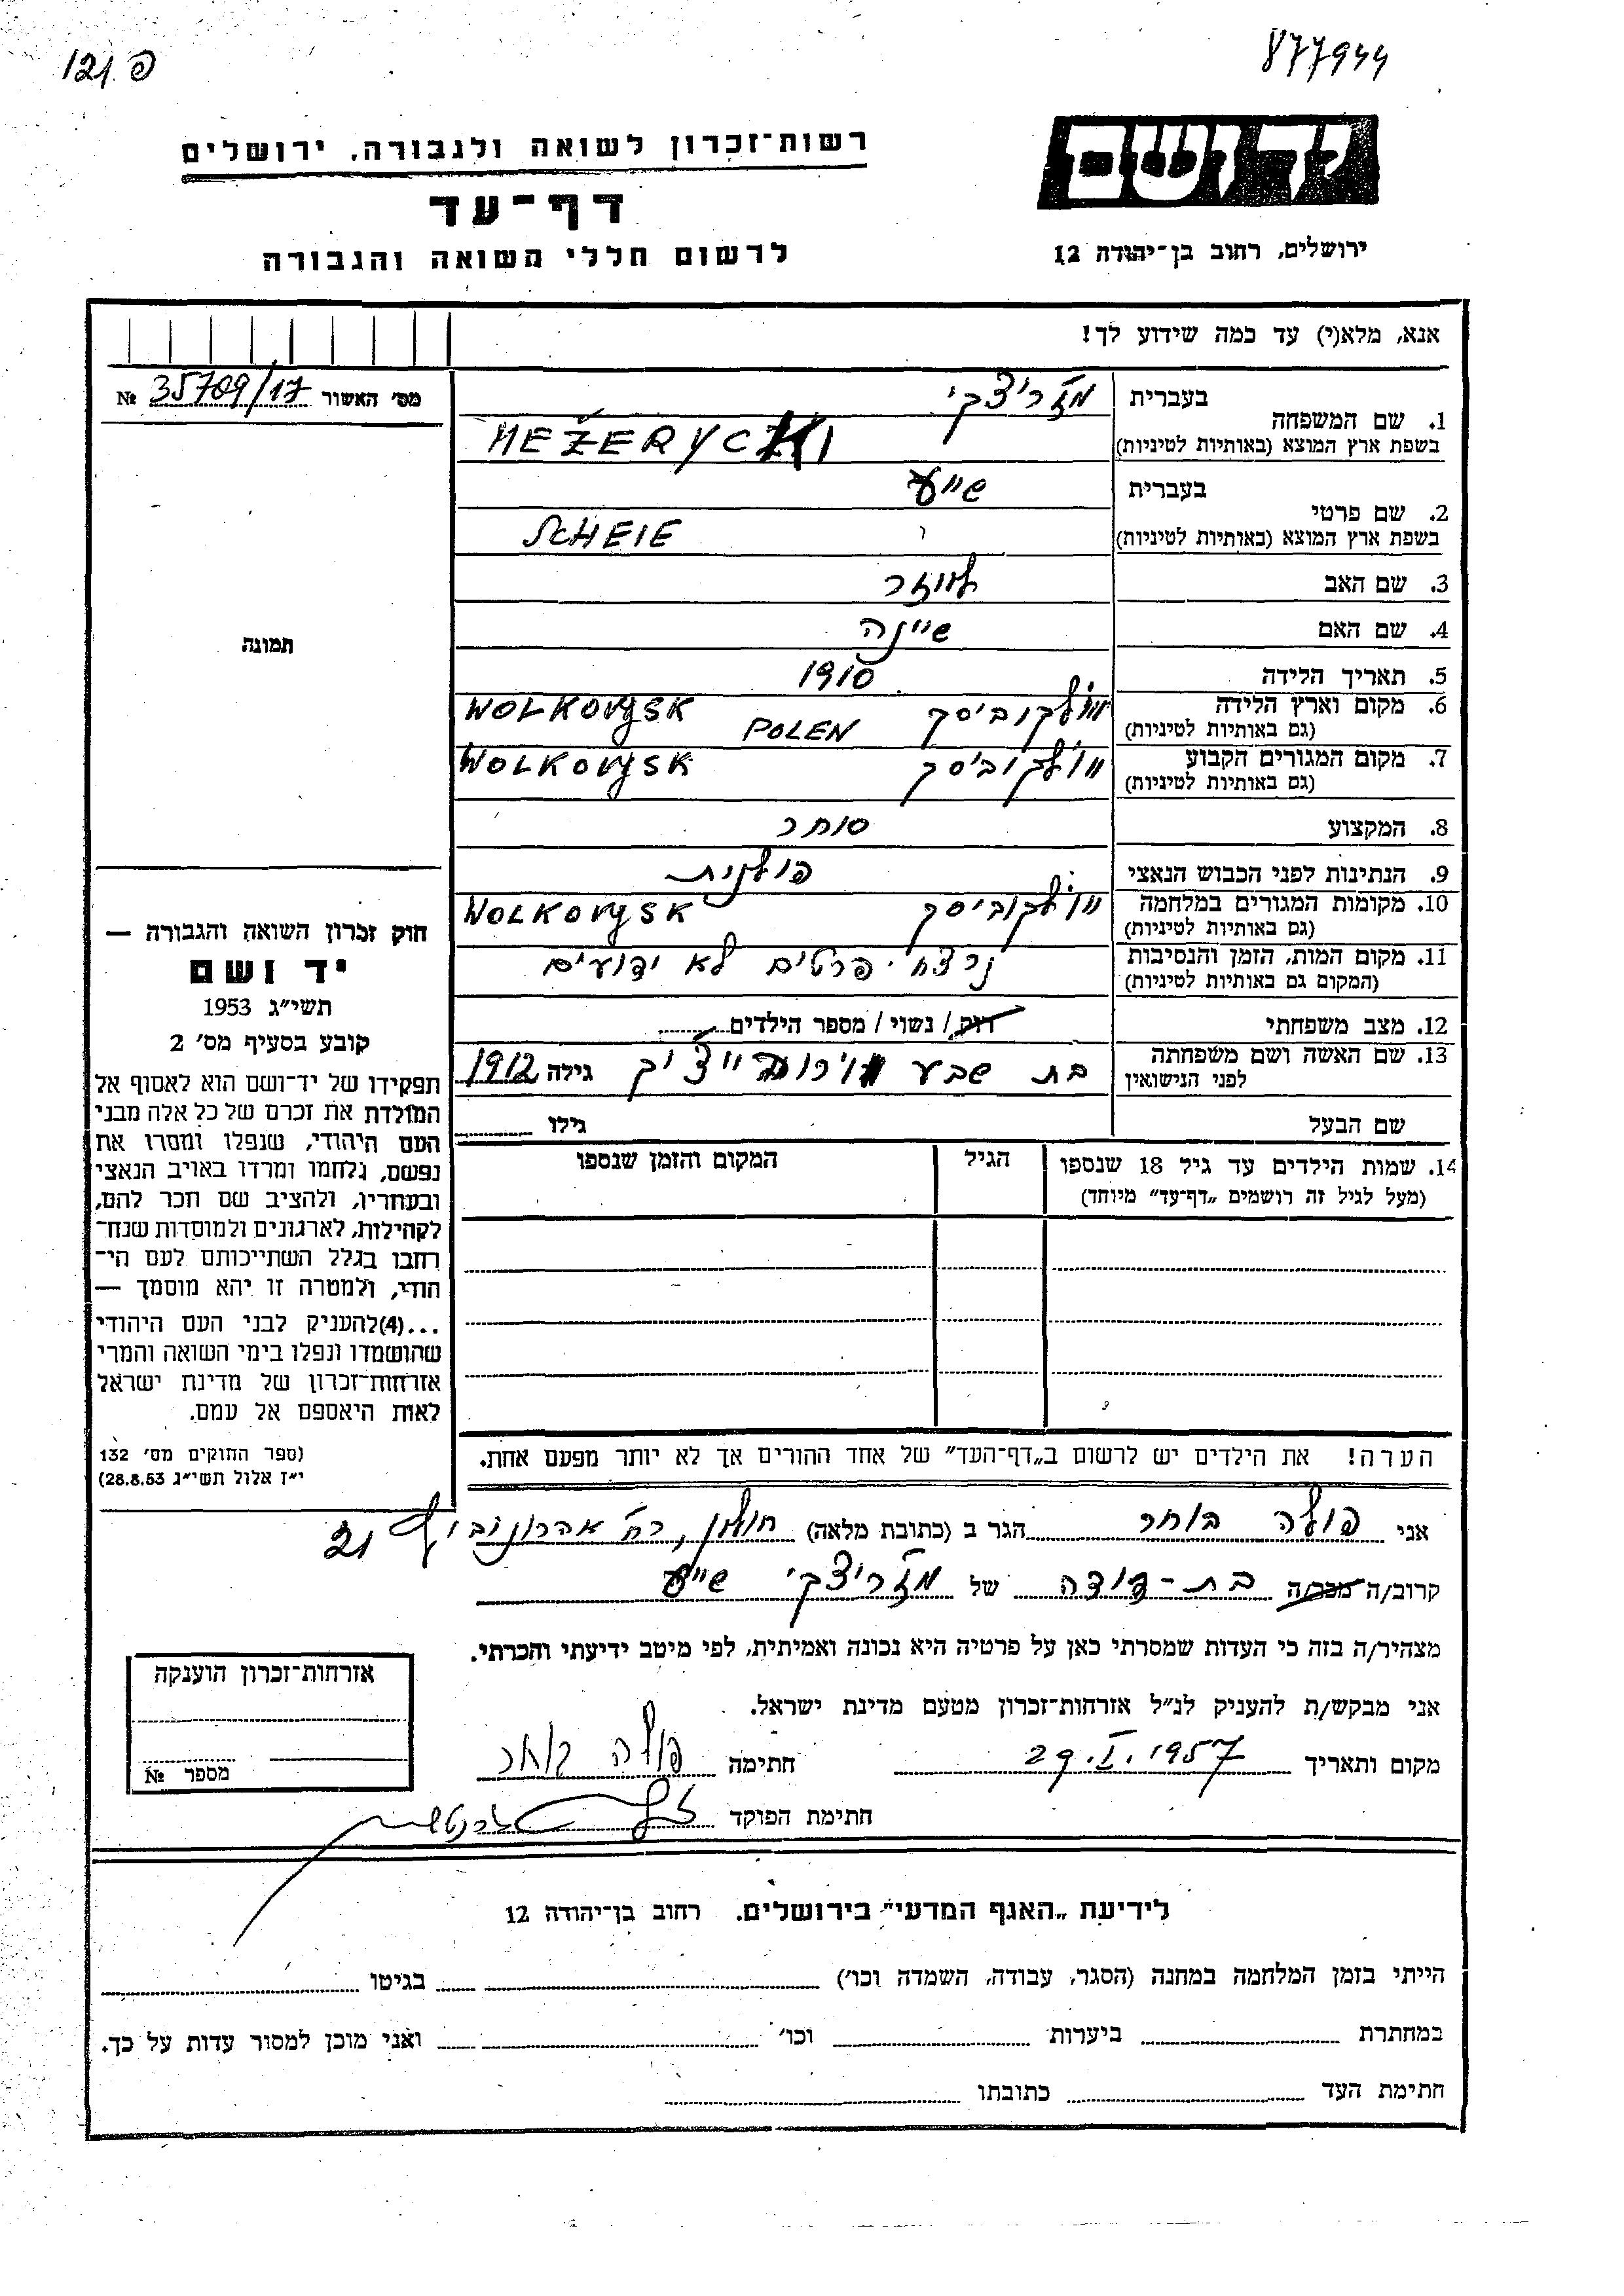 פ 121
877944
יד ושם
ירושלים, רחוב בן־יהודה 12
רשות־זכרון לשואה ולגבורה, ירושלים
דף־עד
לרשום חללי השואה והגבורה
אנא, מלא(י) עד כמה שידוע לך!
מס׳ האשור 35709/17 №
1. שם המשפחה בעברית מזריצקי
בשפת ארץ המוצא (באותיות לטיניות) MEŽERYCKI
2. שם פרטי בעברית שייע
בשפת ארץ המוצא (באותיות לטיניות) SCHEIE
3. שם האב לוזר
4. שם האם שיינה
5. תאריך הלידה 1910
6. מקום וארץ הלידה (גם באותיות לטיניות) וולקוביסק POLEN WOLKOVYSK
7. מקום המגורים הקבוע (גם באותיות לטיניות) וולקוביסק WOLKOVYSK
8. המקצוע סוחר
9. הנתינות לפני הכבוש הנאצי פולנית
10. מקומות המגורים במלחמה (גם באותיות לטיניות) וולקוביסק WOLKOVYSK
11. מקום המות, הזמן והנסיבות (המקום גם באותיות לטיניות) נרצח. פרטים לא ידועים
12. מצב משפחתי רוק / נשוי / מספר הילדים
13. שם האשה ושם משפחתה לפני הנישואין בת שבע גילה 1912
שם הבעל גילו
14. שמות הילדים עד גיל 18 שנספו
(מעל לגיל זה רושמים „דף־עד” מיוחד)
הגיל
המקום והזמן שנספו
הערה! את הילדים יש לרשום ב„דף־העד” של אחד ההורים אך לא יותר מפעם אחת.
תמונה
חוק זכרון השואה והגבורה —
יד ושם
תשי״ג 1953
קובע בסעיף מס׳ 2
תפקידו של יד־ושם הוא לאסוף אל
המולדת את זכרם של כל אלה מבני
העם היהודי, שנפלו ומסרו את
נפשם, נלחמו ומרדו באויב הנאצי
ובעוזריו, ולהציב שם וזכר להם,
לקהילות, לארגונים ולמוסדות שנח־
רבו בגלל השתייכותם לעם הי־
הודי, ולמטרה זו יהא מוסמך —
...(4) להעניק לבני העם היהודי
שהושמדו ונפלו בימי השואה והמרי
אזרחות־זכרון של מדינת ישראל
לאות היאספם אל עמם.
(ספר החוקים מס׳ 132
י״ז אלול תשי״ג 28.8.53)
אני פולה בוחר הגר ב (כתובת מלאה) חולון, רח׳ אהרונוביץ 21
קרוב/ה מכר/ה בת-דודה של מזריצקי שייע
מצהיר/ה בזה כי העדות שמסרתי כאן על פרטיה היא נכונה ואמיתית, לפי מיטב ידיעתי והכרתי.
אני מבקש/ת להעניק לנ״ל אזרחות־זכרון מטעם מדינת ישראל.
מקום ותאריך 29.I.1957 חתימה פולה בוחר
חתימת הפוקד
אזרחות־זכרון הוענקה
מספר №
לידיעת „האגף המדעי” בירושלים. רחוב בן־יהודה 12
הייתי בזמן המלחמה במחנה (הסגר, עבודה, השמדה וכו׳) בגיטו
במחתרת ביערות וכו׳ ואני מוכן למסור עדות על כך.
חתימת העד כתובתו